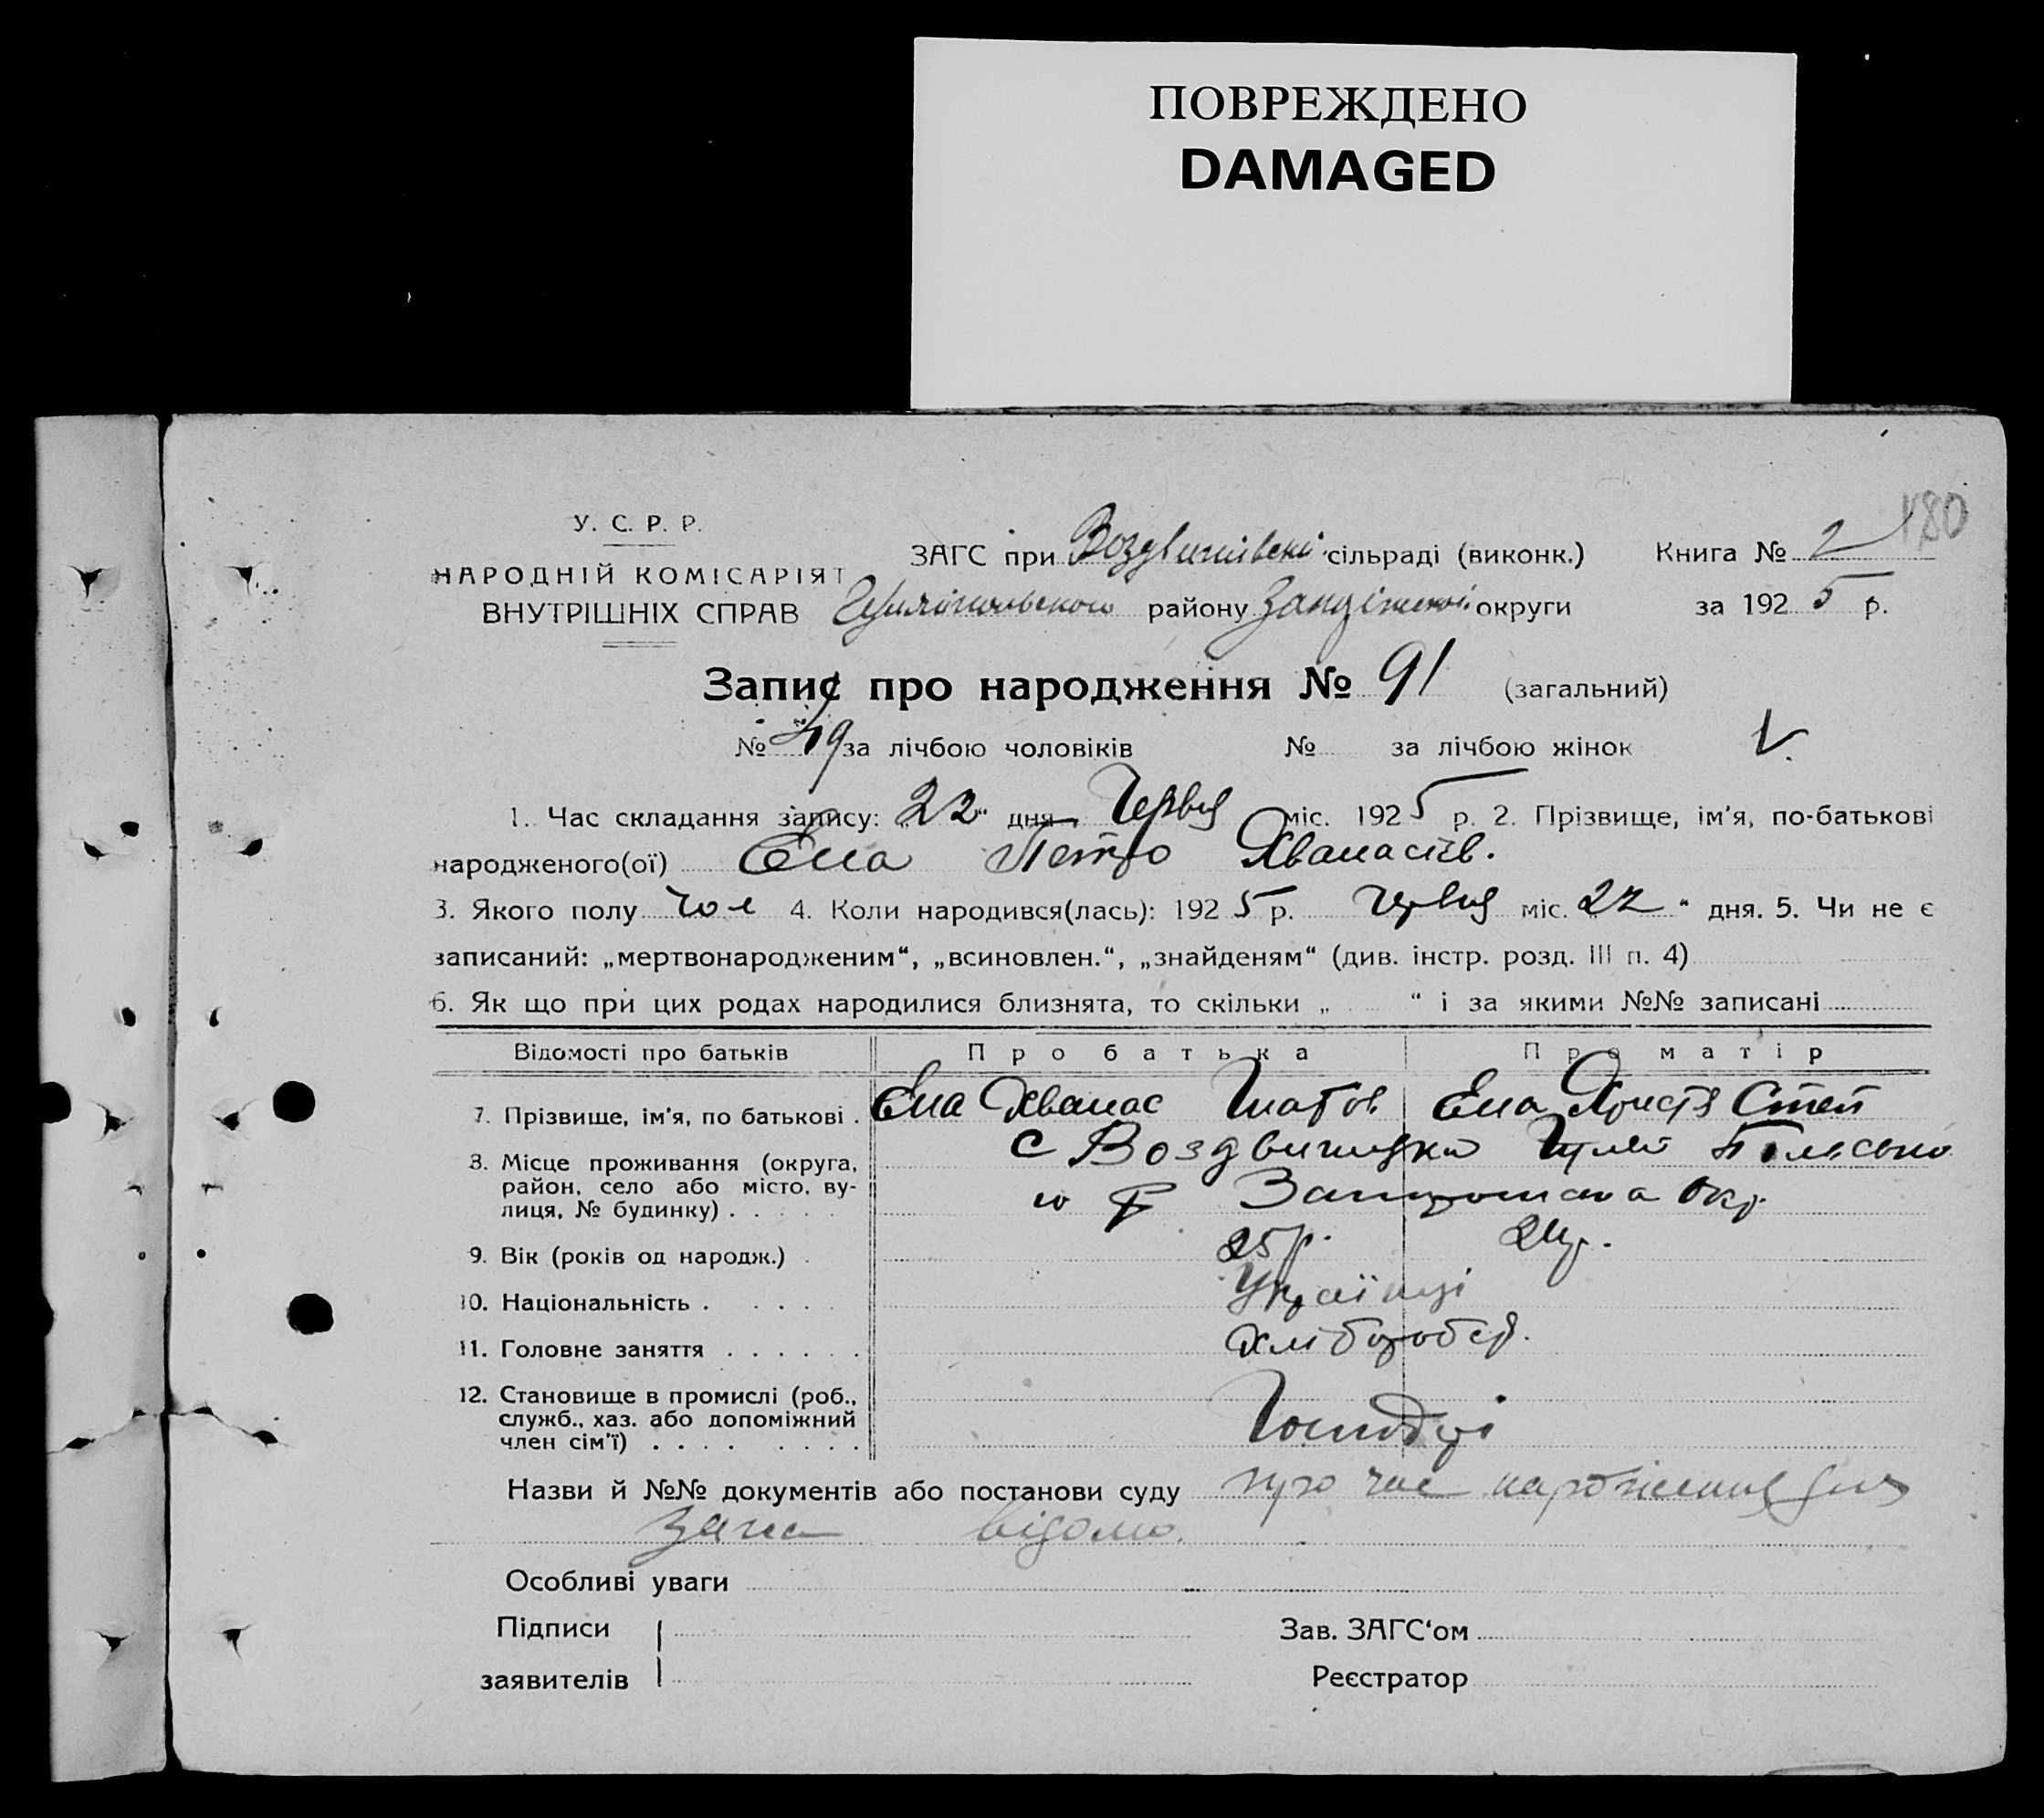 ПОВРЕЖДЕНО
DAMAGED
180
У. С. Р. Р.
НАРОДНІЙ КОМІСАРІЯТ
ВНУТРІШНІХ СПРАВ
ЗАГС при Воздвижівскі сільраді (виконк.) Книга № 2
району округи за 192 5 р.
Запис про народження № 91 (загальний)
№ 49 за лічбою чоловіків № за лічбою жінок V
1. Час складання запису: „22“ дня Червця міс. 192 5 р. 2. Прізвище, ім'я, по-батькові
народженого(ої) Єна Петро Хванасієв.
3. Якого полу чол 4. Коли народився(лась): 192 5 р. Червця міс. 22 “ дня. 5. Чи не є
записаний: „мертвонародженим“, „всиновлен.“, „знайденям“ (див. інстр. розд. III п. 4)
6. Як що при цих родах народилися близнята, то скільки „ “ і за якими №№ записані
Відомості про батьків Про батька Про матір
7. Прізвище, ім'я, по батькові . Єна Хванас Гнатов Єна Христя Степ
8. Місце проживання (округа, район, село або місто, вулиця, № будинку) . . . . . с Воздвижіцка
го р окр.
9. Вік (років од народж.) . 25 р. 24 р.
10. Національність . . . . . Українці
11. Головне заняття . . . . . . хлібороби
12. Становище в промислі (роб., служб., хаз. або допоміжний член сім'ї) . . . . . . . . Господарі
Назви й №№ документів або постанови суду про час народження
відомо.
Особливі уваги
Підписи
заявителів
Зав. ЗАГС'ом
Реєстратор